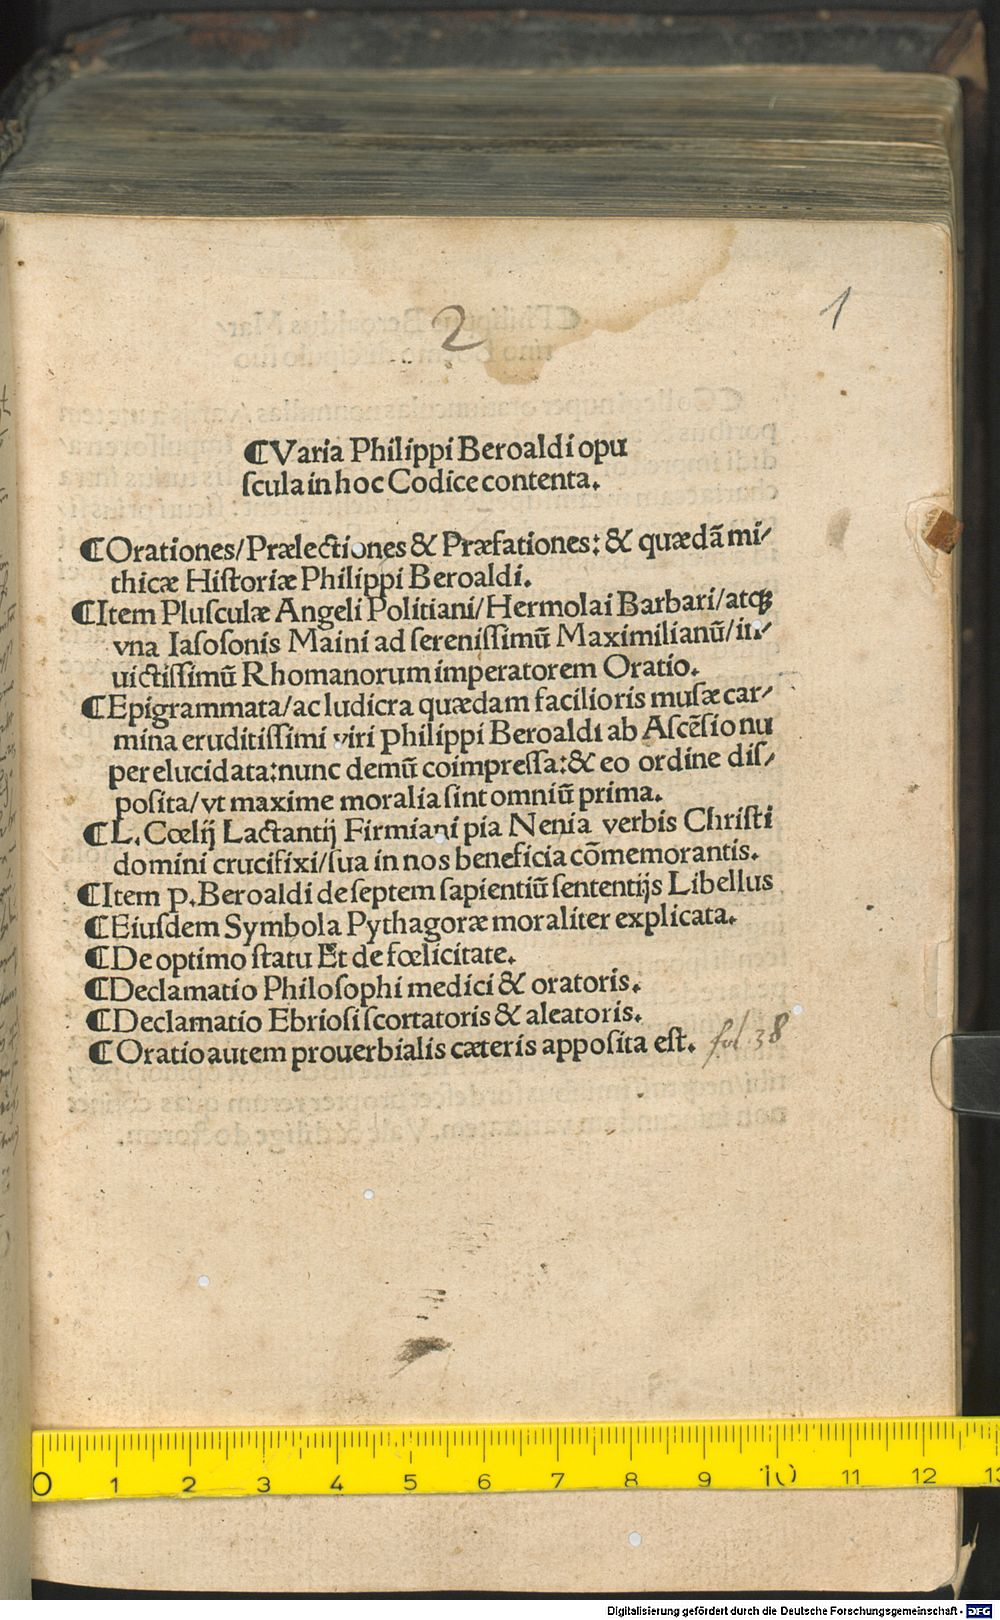 2
1
⸿Varia Philippi Beroaldi opu
ſcula in hoc Codice contenta.
⸿Orationes/Prælectiones & Præfationes: & quædã mi/
thicæ Hiſtoriæ Philippi Beroaldi.
⸿Item Pluſculæ Angeli Politiani/Hermolai Barbari/atqꝫ
vna Iaſoſonis Maini ad ſereniſſimũ Maximilianũ/in/
uictiſſimũ Rhomanorum imperatorem Oratio.
⸿Epigrammata/ac ludicra quædam facilioris muſæ car/
mina eruditiſſimi viri philippi Beroaldi ab Aſcẽſio nu
per elucidata:nunc demũ coimpreſſa:& eo ordine diſ/
poſita/vt maxime moralia ſint omniũ prima.
⸿L. Cœlij Lactantij Firmiani pia Nenia verbis Chriſti
domini crucifixi/ſua in nos beneficia cõmemorantis.
⸿Item p.Beroaldi de ſeptem ſapientiũ ſententijs Libellus
⸿Eiuſdem Symbola Pythagoræ moraliter explicata.
⸿De optimo ſtatu Et de fœlicitate.
⸿Declamatio Philoſophi medici & oratoris.
⸿Declamatio Ebrioſi ſcortatoris & aleatoris.
⸿Oratio autem prouerbialis cæteris appoſita eſt. fol. 38
0 1 2 3 4 5 6 7 8 9 10 11 12 13
Digitalisierung gefördert durch die Deutsche Forschungsgemeinschaft - DFG